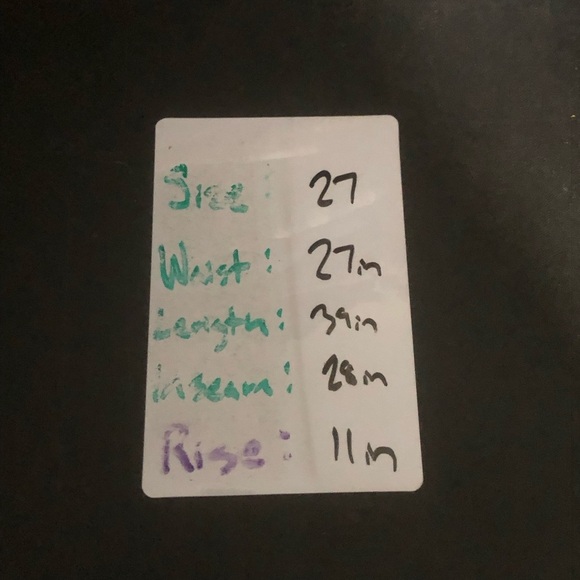 Size: 27
Waist: 27in
Length: 39in
inseam: 28in
Rise: 11in